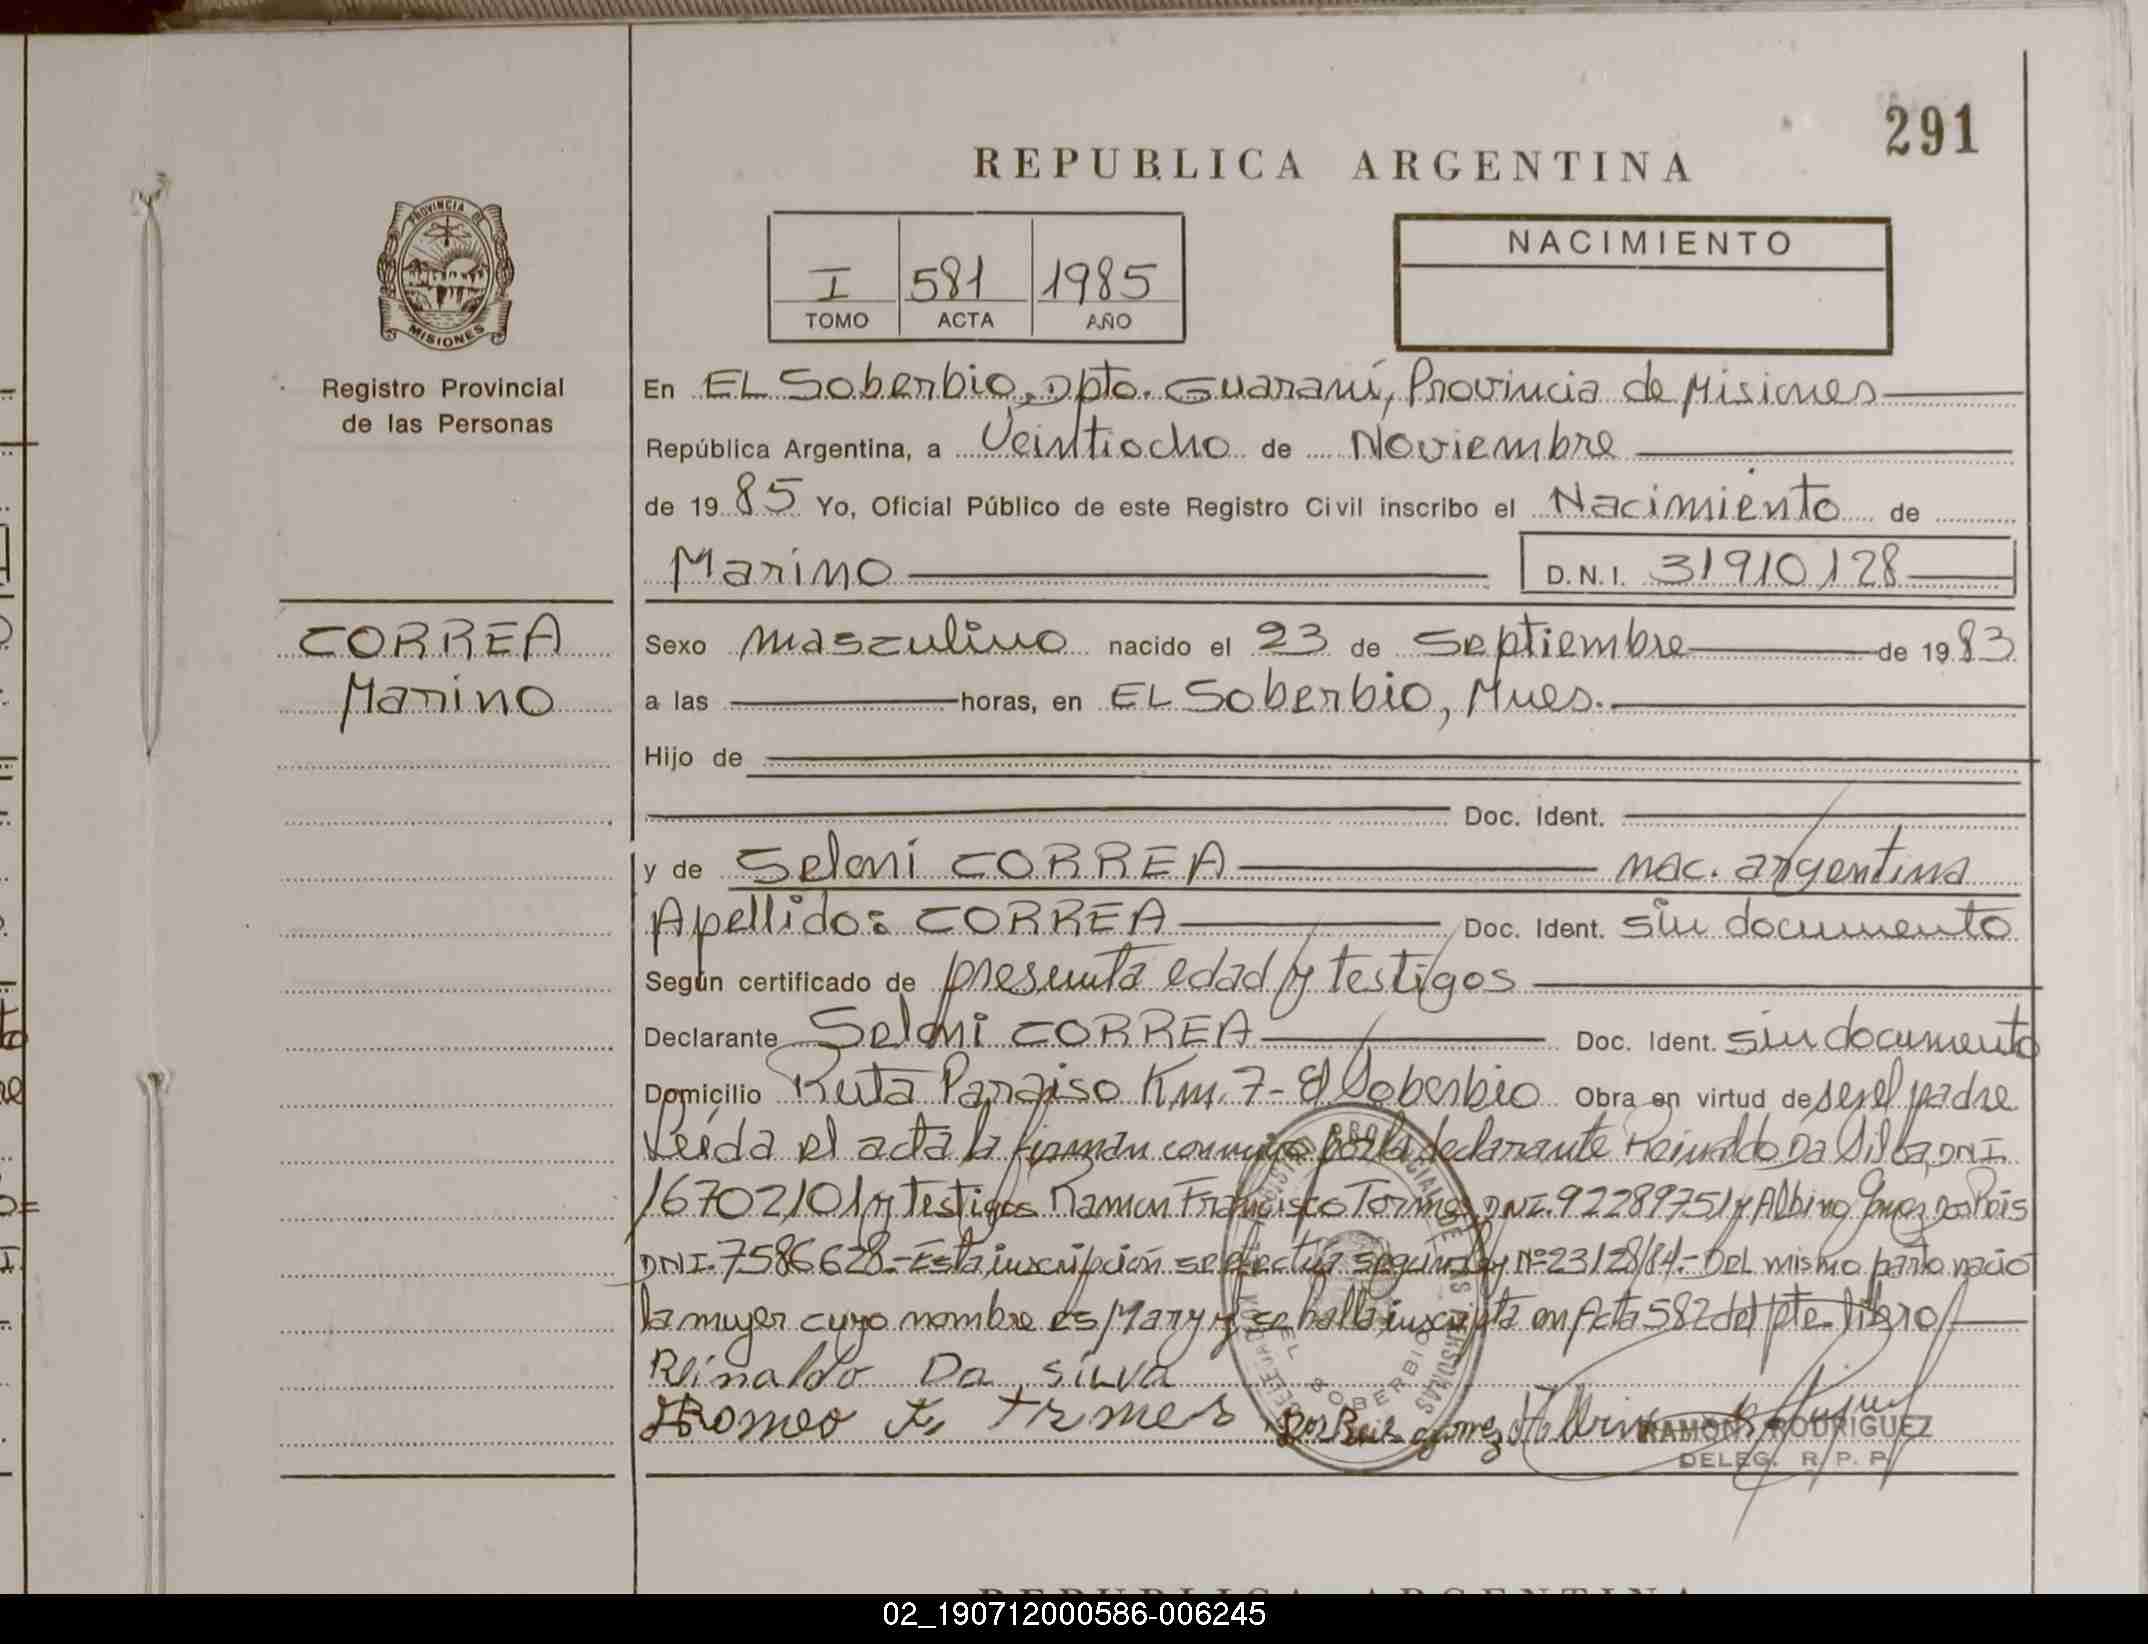 291
REPUBLICA ARGENTINA
PROVINCIA DE
MISIONES
Registro Provincial
de las Personas
I 581 1985
TOMO ACTA AÑO
NACIMIENTO
En EL Soberbio, Dpto. Guaraní, Provincia de Misiones
República Argentina, a Veintiocho de Noviembre
de 19 85 Yo, Oficial Público de este Registro Civil inscribo el Nacimiento de
Marino D.N.I. 31910128
CORREA
Marino
Sexo masculino nacido el 23 de Septiembre de 19 83
a las horas, en EL Soberbio, Mnes.
Hijo de
Doc. Ident.
y de Seloni CORREA nac. argentina
Apellido: CORREA Doc. Ident. sin documento
Según certificado de presunta edad y testigos
Declarante Seloni CORREA Doc. Ident. sin documento
Domicilio Ruta Paraiso Km. 7 - El Soberbio Obra en virtud de ser el padre
Leída el acta la firman conmigo por la declarante Reinaldo Da Silba, DNI.
16702101 y Testigos Ramon Francisco Tormes, DNI. 92289751 y Albino Gomez Dos Reis
DNI. 7586628.- Esta inscripción se efectúa según Ley Nº 23128/84.- Del mismo parto nació
la mujer cuyo nombre es Mary y se halla inscripta en Acta 582 del pte. libro
Reinaldo Da silva
Romeo F. trmes Dos Reis gomez Albino
RAMON RODRIGUEZ
DELEG. R. P. P.
EL SOBERBIO
REPUBLICA ARGENTINA
02_190712000586-006245